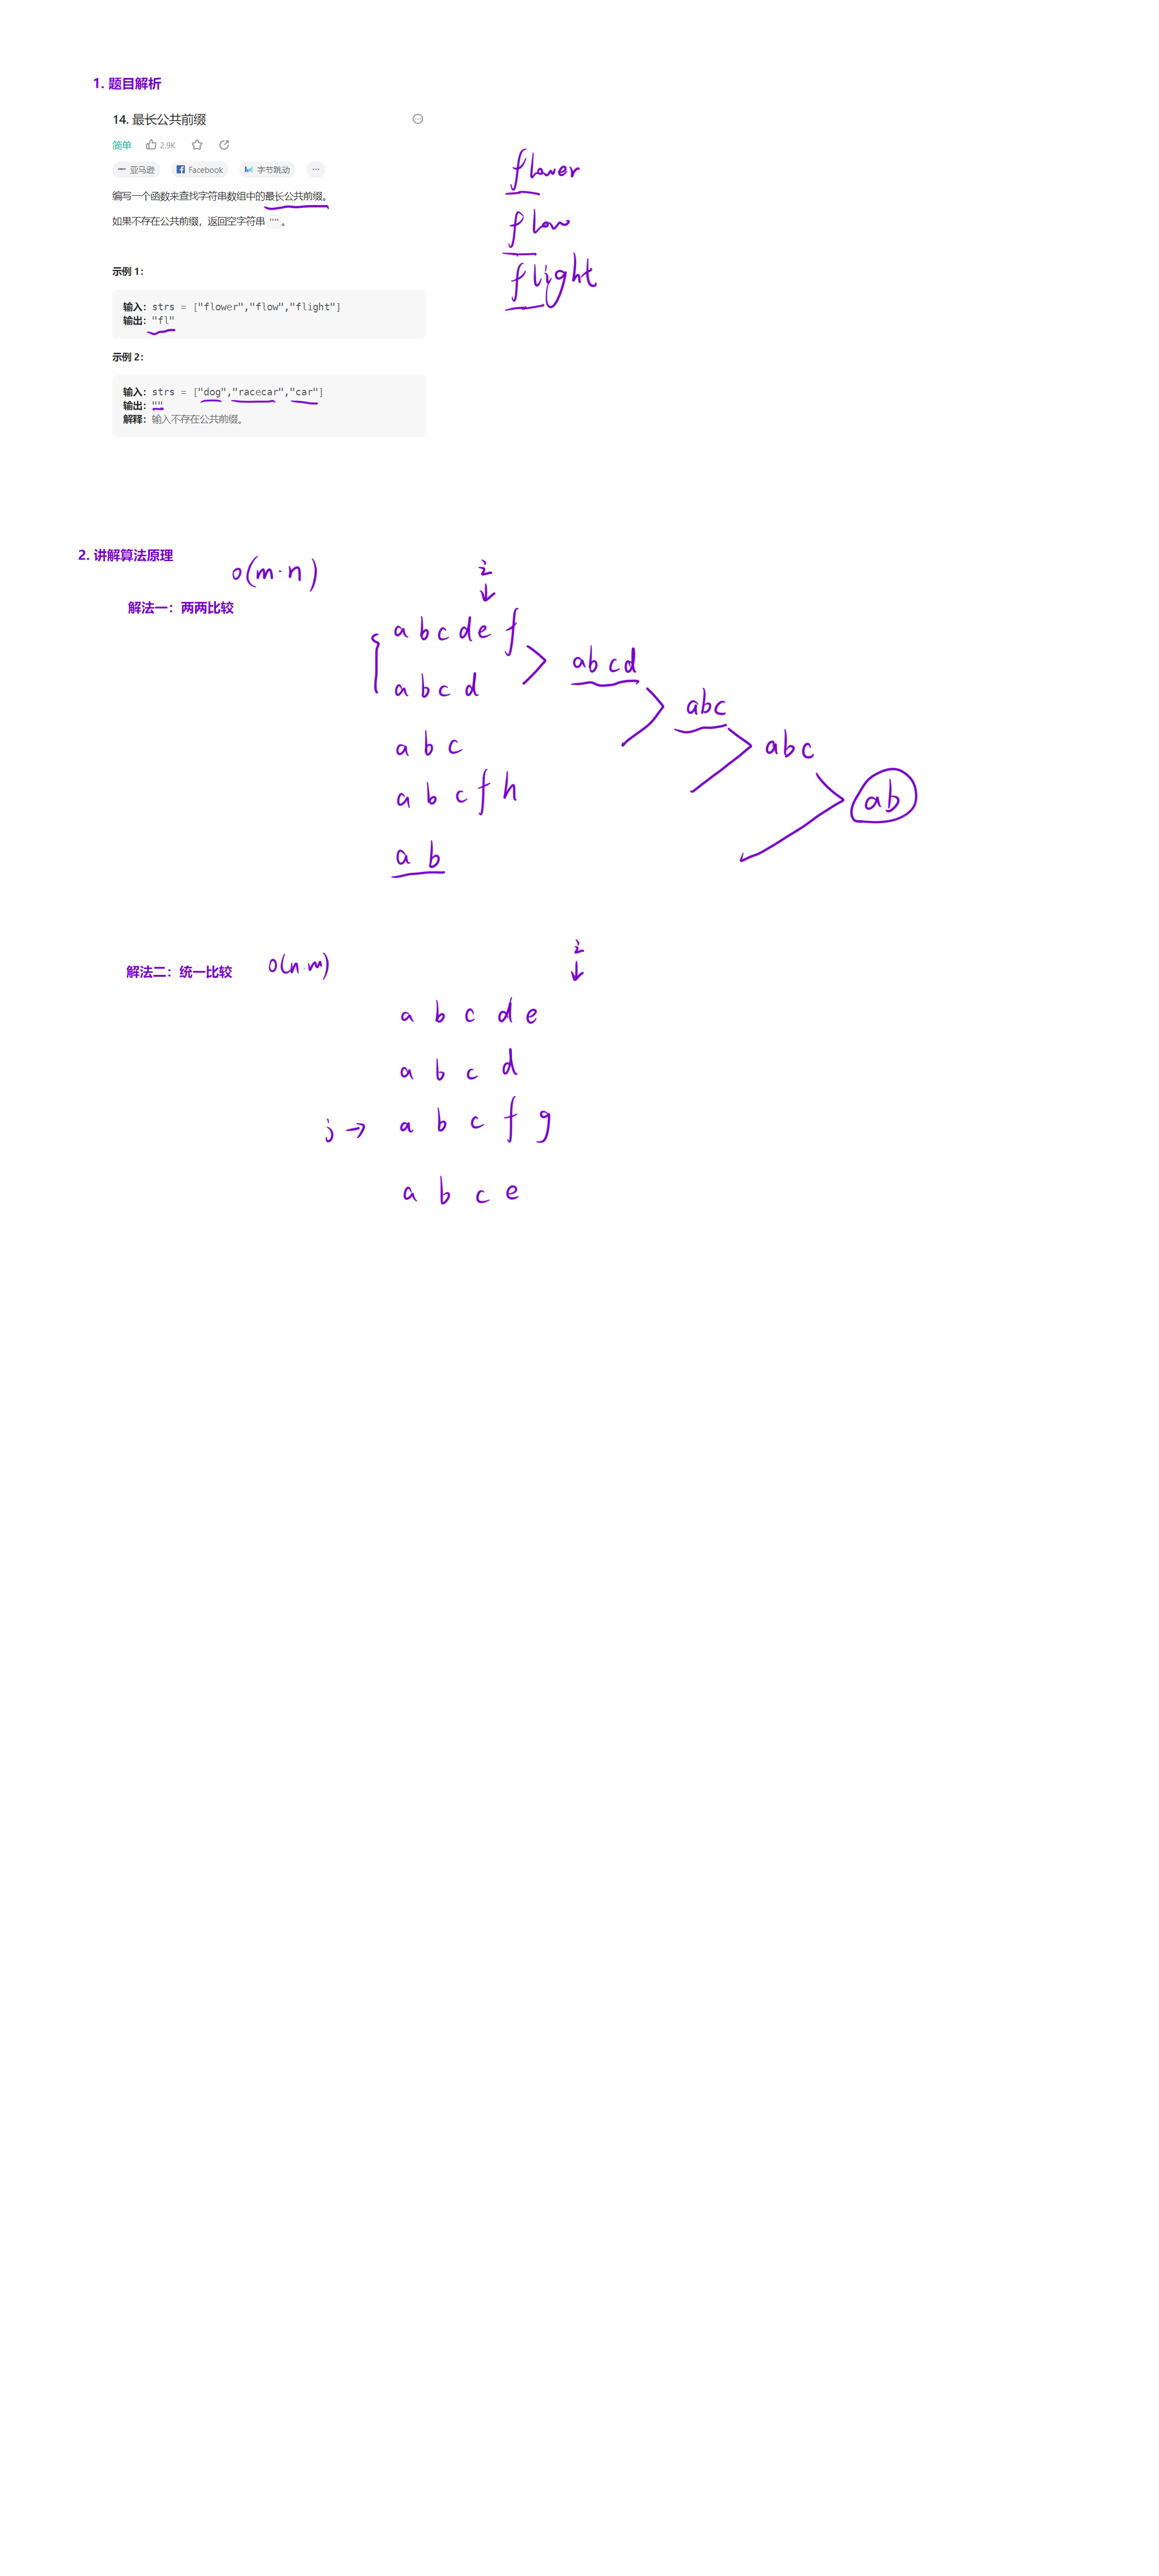 1. 题目解析
14. 最长公共前缀
简单 2.9K
亚马逊 Facebook 字节跳动 ...
编写一个函数来查找字符串数组中的最长公共前缀。
如果不存在公共前缀，返回空字符串 ""。
flower
flow
flight
示例 1：
输入：strs = ["flower","flow","flight"]
输出："fl"
示例 2：
输入：strs = ["dog","racecar","car"]
输出：""
解释：输入不存在公共前缀。
2. 讲解算法原理
O(m·n)
解法一：两两比较
i
↓
a b c d e f
a b c d
a b c
a b c f h
a b
abcd
abc
abc
ab
解法二：统一比较
O(n·m)
i
↓
a b c d e
a b c d
j → a b c f g
a b c e